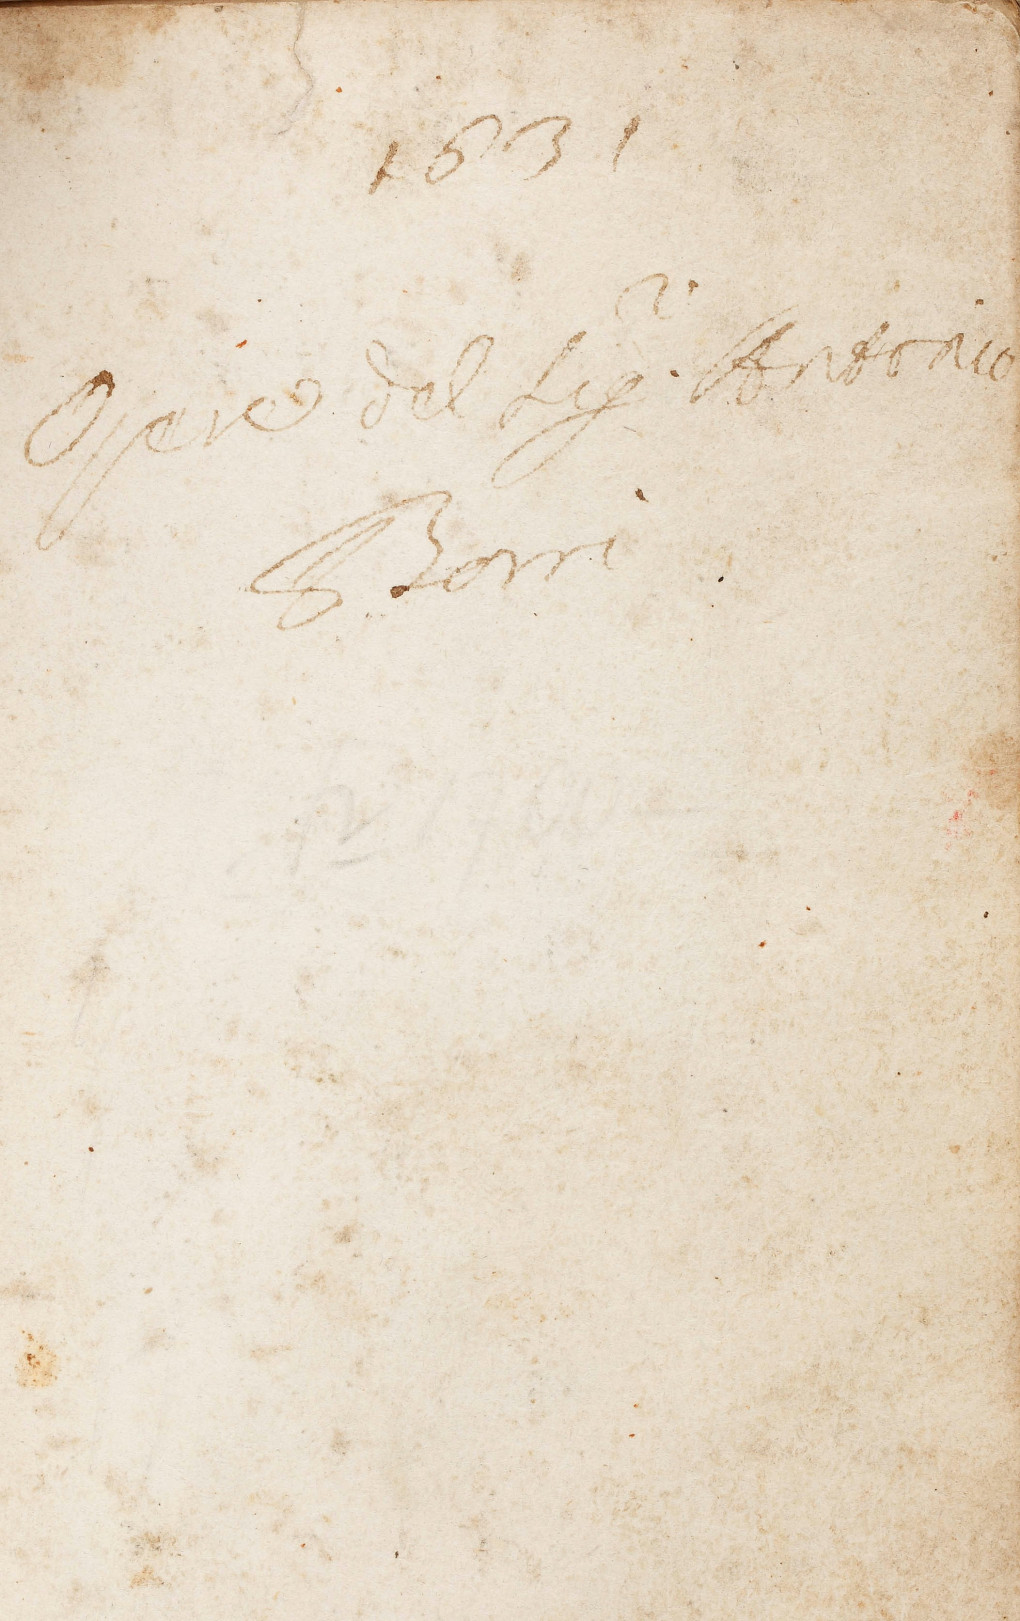 1631
Opere del Sig.r Antonio
Borri